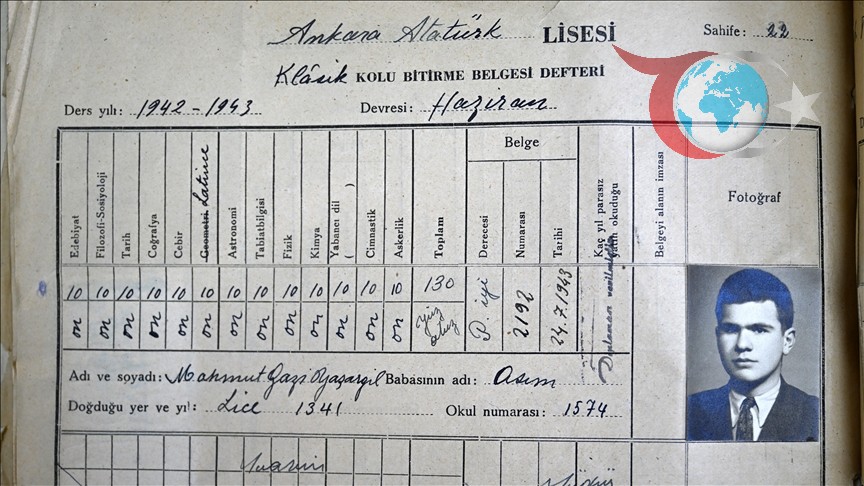 Ankara Atatürk LİSESİ
Sahife: 22
Klâsik KOLU BİTİRME BELGESİ DEFTERİ
Ders yılı: 1942-1943 Devresi: Haziran
Edebiyat
Filozofi-Sosiyoloji
Tarih
Coğrafya
Cebir
Geometri Latince
Astronomi
Tabiatbilgisi
Fizik
Kimya
Yabancı dil ( )
Cimnastik
Askerlik
Toplam
Belge
Derecesi
Numarası
Tarihi
Kaç yıl parasız yatılı okuduğu
Belgeyi alanın imzası
Fotoğraf
10 10 10 10 10 10 10 10 10 10 10 10 10 130
on on on on on on on on on on on on on yüz otuz
P. iyi
2192
24.7.1943
Adı ve soyadı: Mahmut Gazi Yaşargil Babasının adı: Asım
Doğduğu yer ve yıl: Lice 1341 Okul numarası: 1574